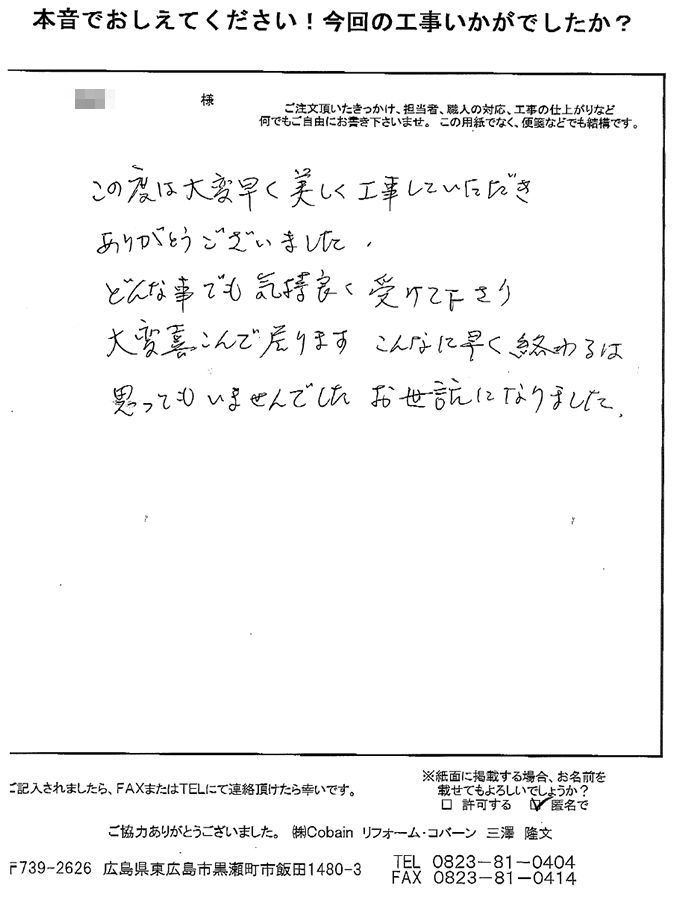 本音でおしえてください!今回の工事いかがでしたか?
様
ご注文頂いたきっかけ、担当者、職人の対応、工事の仕上がりなど
何でもご自由にお書き下さいませ。この用紙でなく、便箋などでも結構です。
この度は大変早く美しく工事していただき
ありがとうございました.
どんな事でも気持良く受けて下さり
大変喜こんで居ります こんなに早く終わるは
思ってもいませんでした お世話になりました.
ご記入されましたら、FAXまたはTELにて連絡頂けたら幸いです。
※紙面に掲載する場合、お名前を
載せてもよろしいでしょうか?
□ 許可する ☑ 匿名で
ご協力ありがとうございました。 ㈱Cobain リフォーム・コバーン 三澤 隆文
〒739-2626 広島県東広島市黒瀬町市飯田1480-3
TEL 0823-81-0404
FAX 0823-81-0414